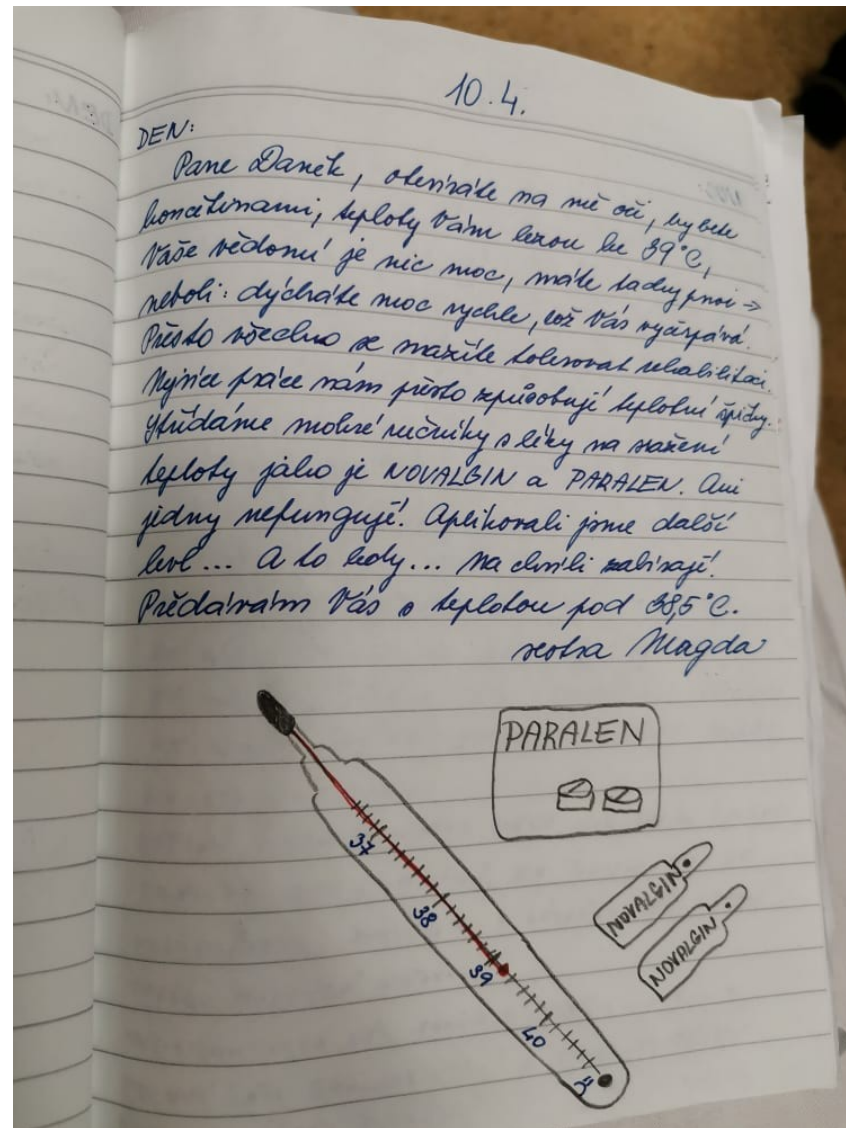 10.4.
DEN:
Pane Daněk, otevíráte na mě oči, hýbete
končetinami, teploty Vám lezou ke 39°C,
Vaše vědomí je nic moc, máte tachypnoi →
neboli: dýcháte moc rychle, což Vás vyčerpává.
Přesto všechno se snažíte tolerovat rehabilitaci.
Nejvíce práce nám přesto způsobují teplotní špičky.
Střídáme mokré ručníky s léky na snažení
teploty jako je NOVALGIN a PARALEN. Ani
jedny nefungují. Aplikovali jsme další
levl... A to ledy... na chvíli zabírají.
Předávám Vás s teplotou pod 38,5°C.
sestra Magda
PARALEN
37
38
39
40
NOVALGIN
NOVALGIN